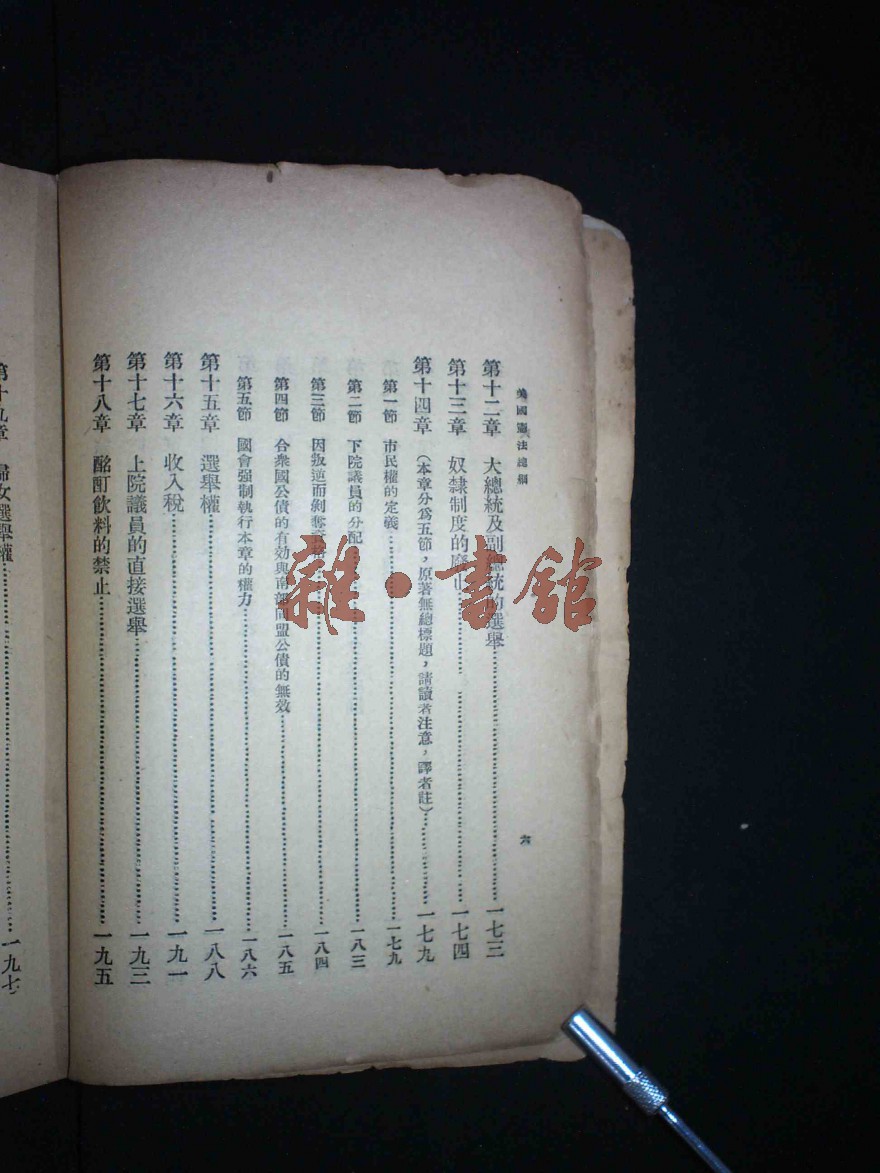 美國憲法總綱
六
第十二章 大總統及副總統的選舉……一七三
第十三章 奴隸制度的廢止……一七四
第十四章 (本章分爲五節,原著無總標題,請讀者注意,譯者註)……一七九
第一節 市民權的定義……一七九
第二節 下院議員的分配……一八三
第三節 因叛逆而剝奪……一八四
第四節 合衆國公債的有効與南部同盟公債的無效……一八五
第五節 國會强制執行本章的權力……一八六
第十五章 選舉權……一八八
第十六章 收入稅……一九一
第十七章 上院議員的直接選舉……一九三
第十八章 酩酊飲料的禁止……一九五
第十九章 婦女選舉權……一九七
雜·書館